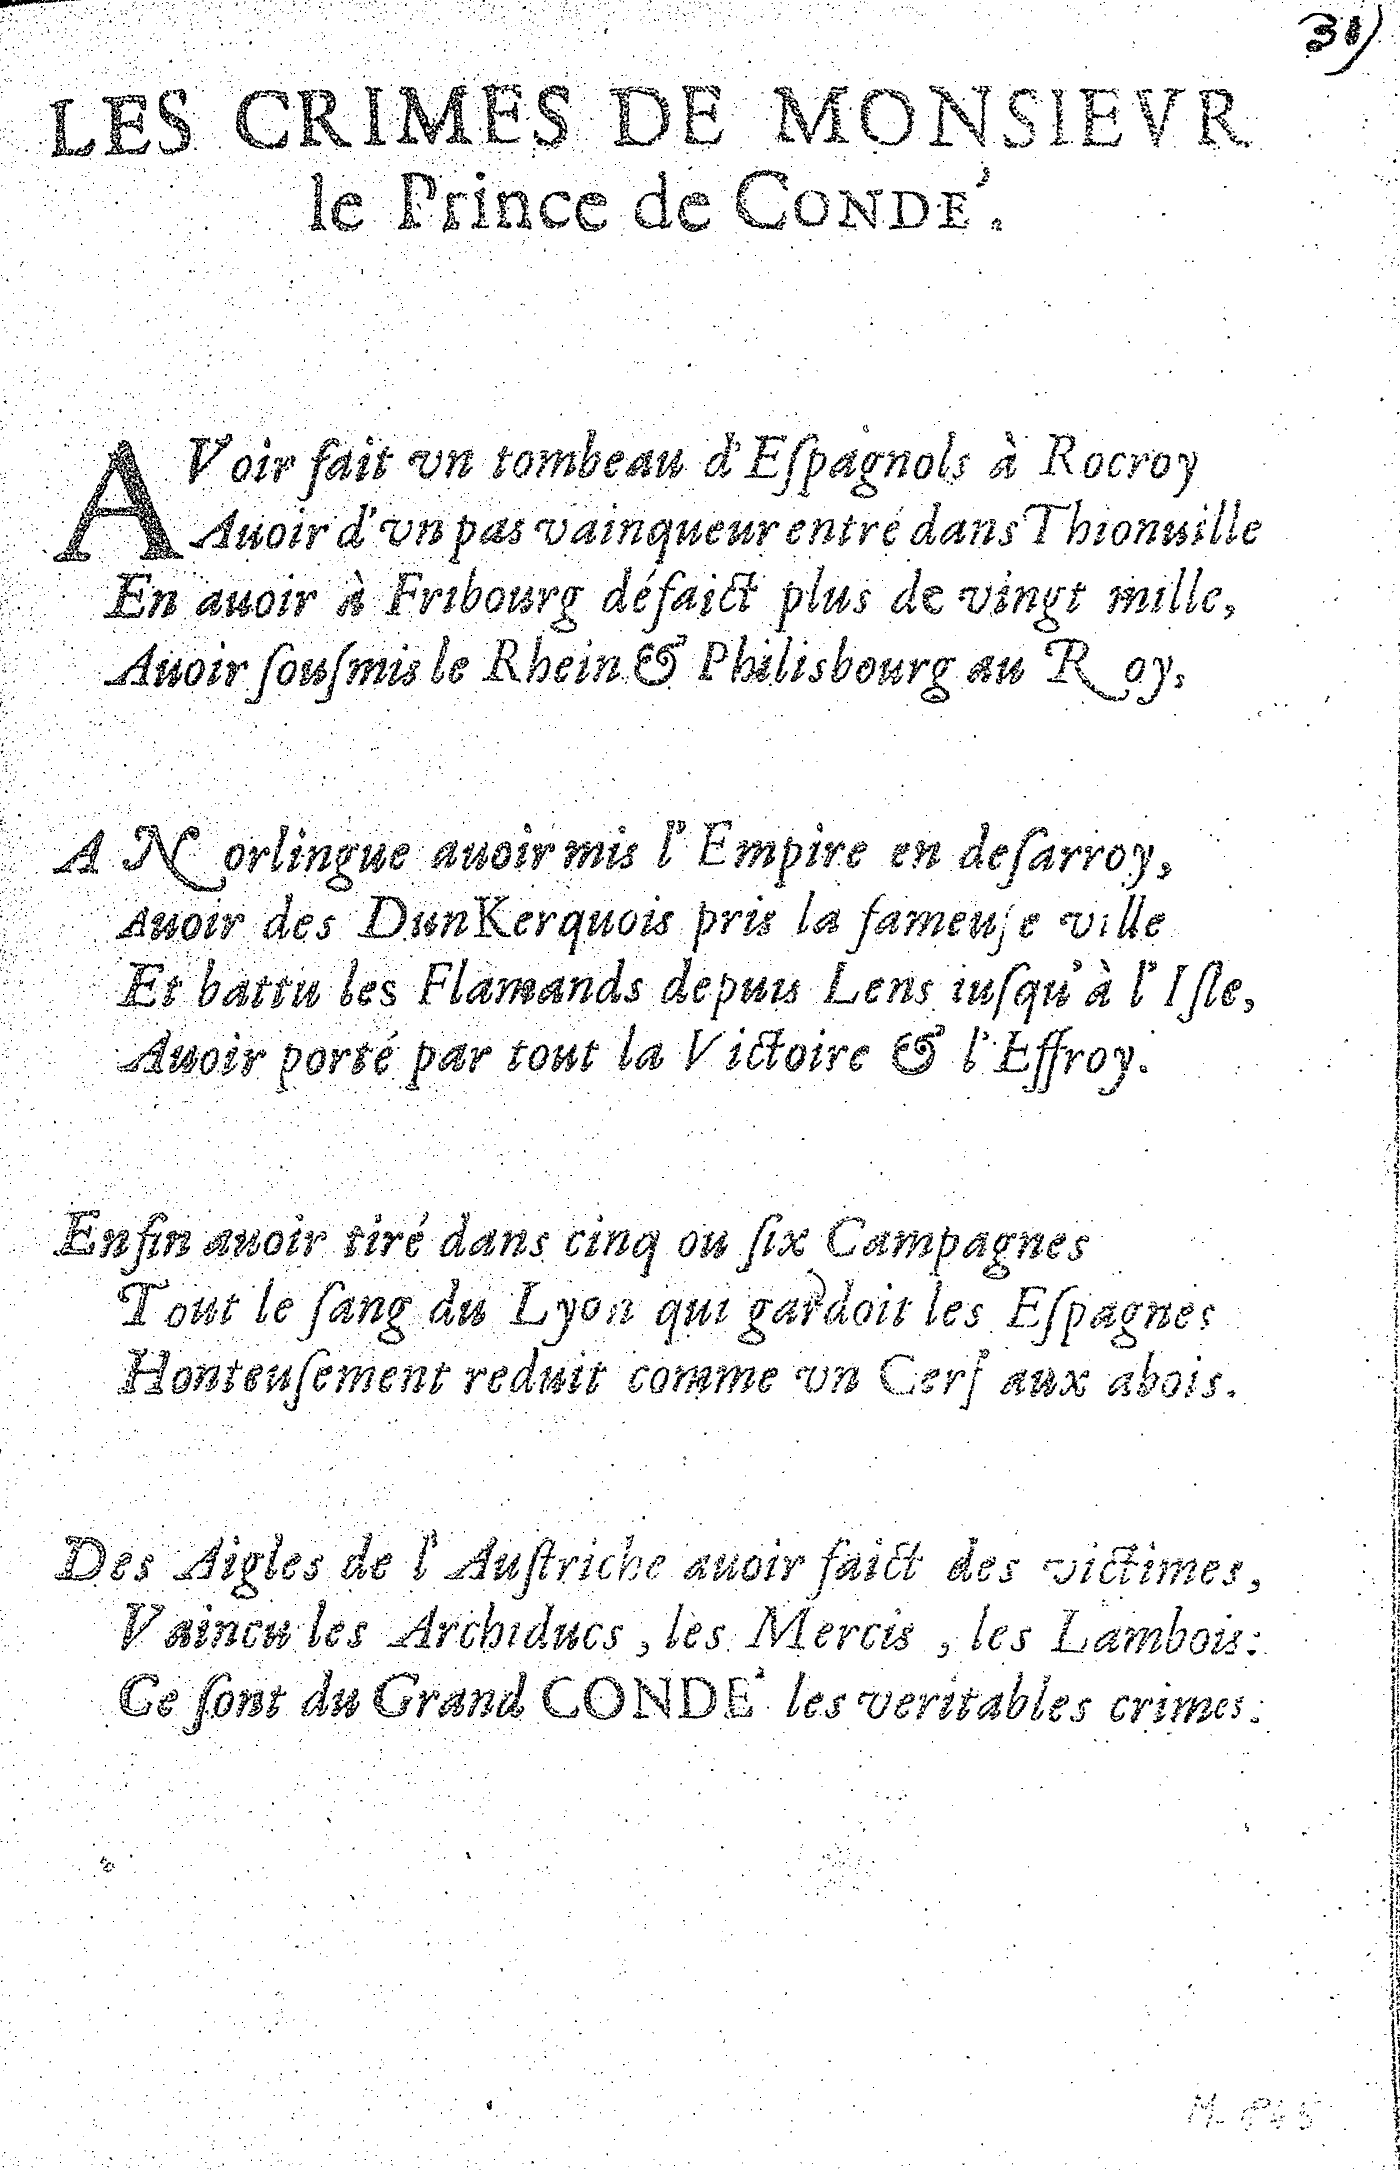 31)
LES CRIMES DE MONSIEVR
le Prince de CONDE'.
AVoir fait vn tombeau d'Eſpagnols à Rocroy
Auoir d'vn pas vainqueur entré dans Thionuille
En auoir à Fribourg défaict plus de vingt mille,
Auoir ſouſmis le Rhein & Philisbourg au Roy,
A Norlingue auoir mis l'Empire en deſarroy,
Auoir des DunKerquois pris la fameuſe ville
Et battu les Flamands depuis Lens iuſqu'à l'Iſle,
Auoir porté par tout la Victoire & l'Effroy.
Enfin auoir tiré dans cinq ou ſix Campagnes
Tout le ſang du Lyon qui gardoit les Eſpagnes
Honteuſement reduit comme vn Cerf aux abois.
Des Aigles de l'Auſtriche auoir faict des victimes,
Vaincu les Archiducs, les Mercis, les Lambois:
Ce ſont du Grand CONDE' les veritables crimes.